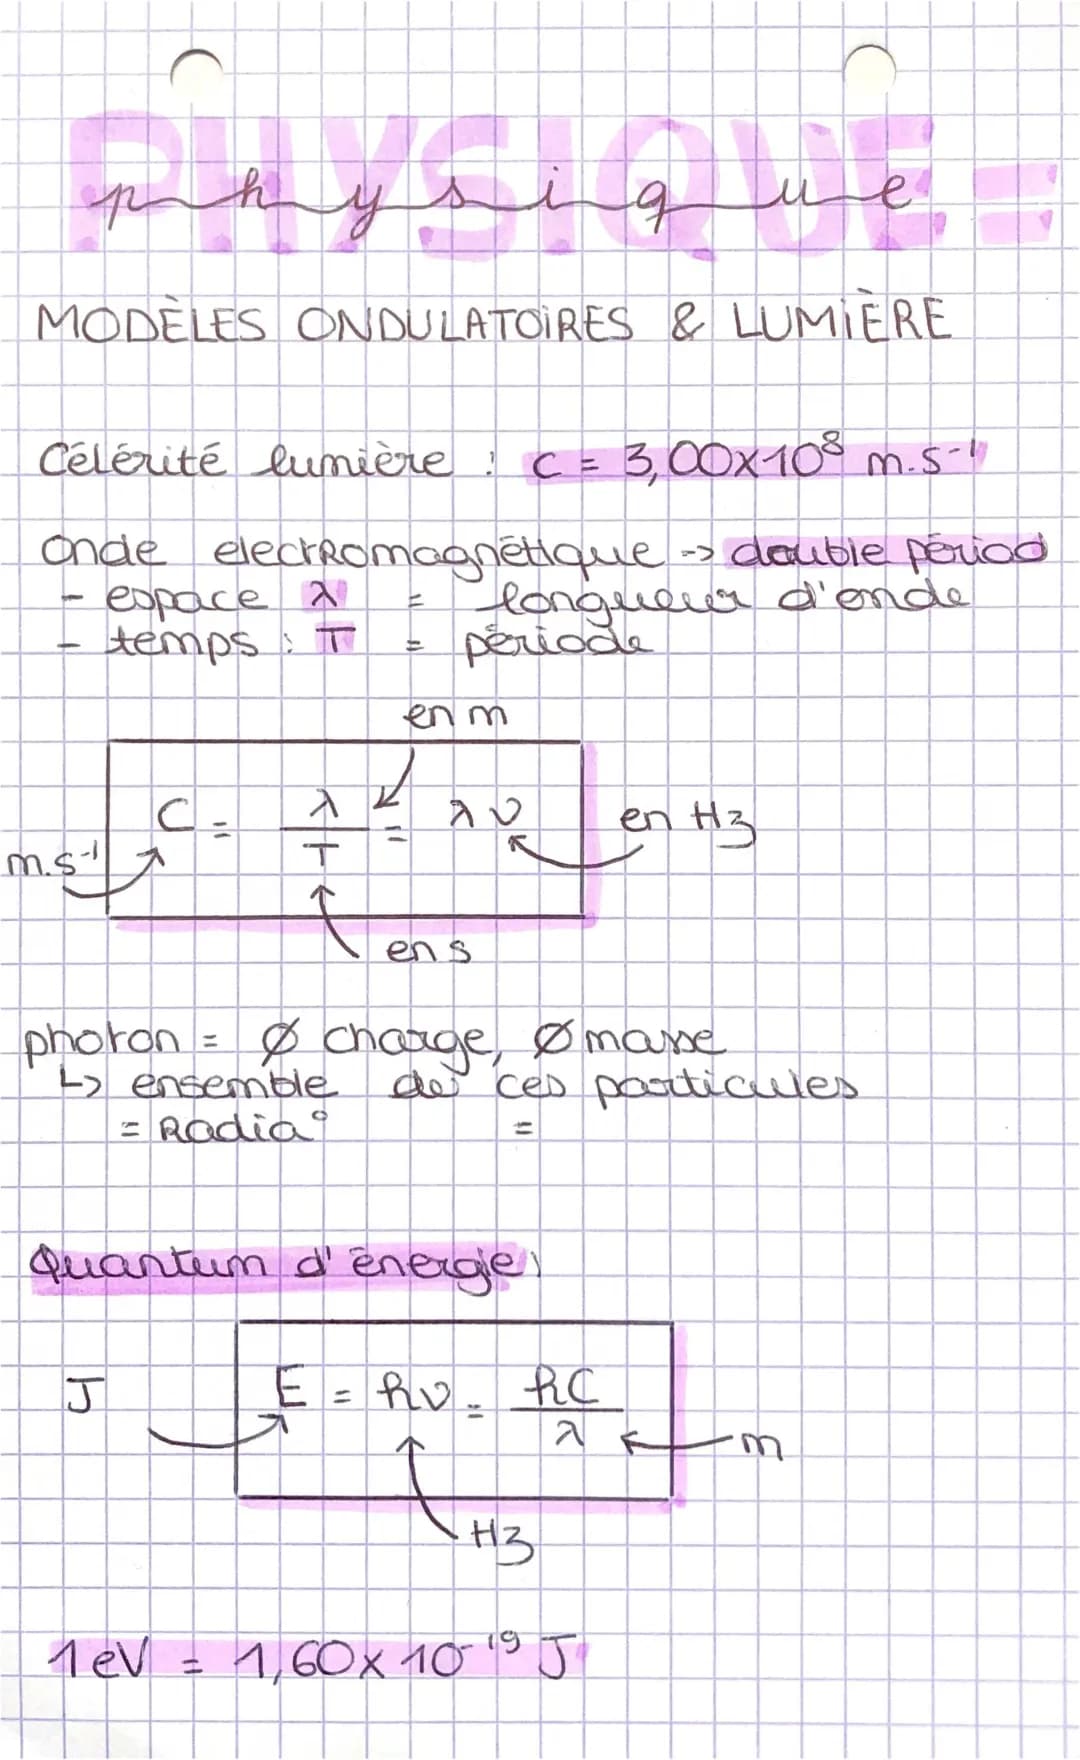 PHYSIQUE
physique
MODÈLES ONDULATOIRES & LUMIÈRE
Célérité lumière : C = 3,00x10⁸ m.s⁻¹
Onde electromagnétique -> double périod
- espace λ = longueur d'onde
- temps : T = période
en m
C = λ/T = λν
en Hz
m.s⁻¹
en s
photon = Ø charge, Ø masse
↳ ensemble de ces particules
= Radia° =
Quantum d'énergie
J
E = hν = hC/λ
m
Hz
1 eV = 1,60x10⁻¹⁹ J